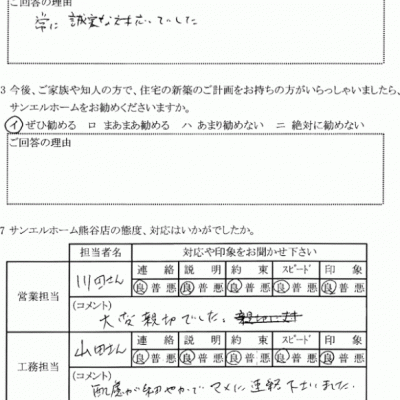 ご回答の理由
常に誠実な対応でした
3 今後、ご家族や知人の方で、住宅の新築のご計画をお持ちの方がいらっしゃいましたら、
サンエルホームをお勧めくださいますか。
イ ぜひ勧める ロ まあまあ勧める ハ あまり勧めない ニ 絶対に勧めない
ご回答の理由
7 サンエルホーム熊谷店の態度、対応はいかがでしたか。
担当者名 対応や印象をお聞かせ下さい
営業担当 川田さん 連絡 説明 約束 スピード 印象
良 普 悪 良 普 悪 良 普 悪 良 普 悪 良 普 悪
(コメント)
大変親切でした。
工務担当 山田さん 連絡 説明 約束 スピード 印象
良 普 悪 良 普 悪 良 普 悪 良 普 悪 良 普 悪
(コメント)
配慮が細やかでマメに連絡下さいました。